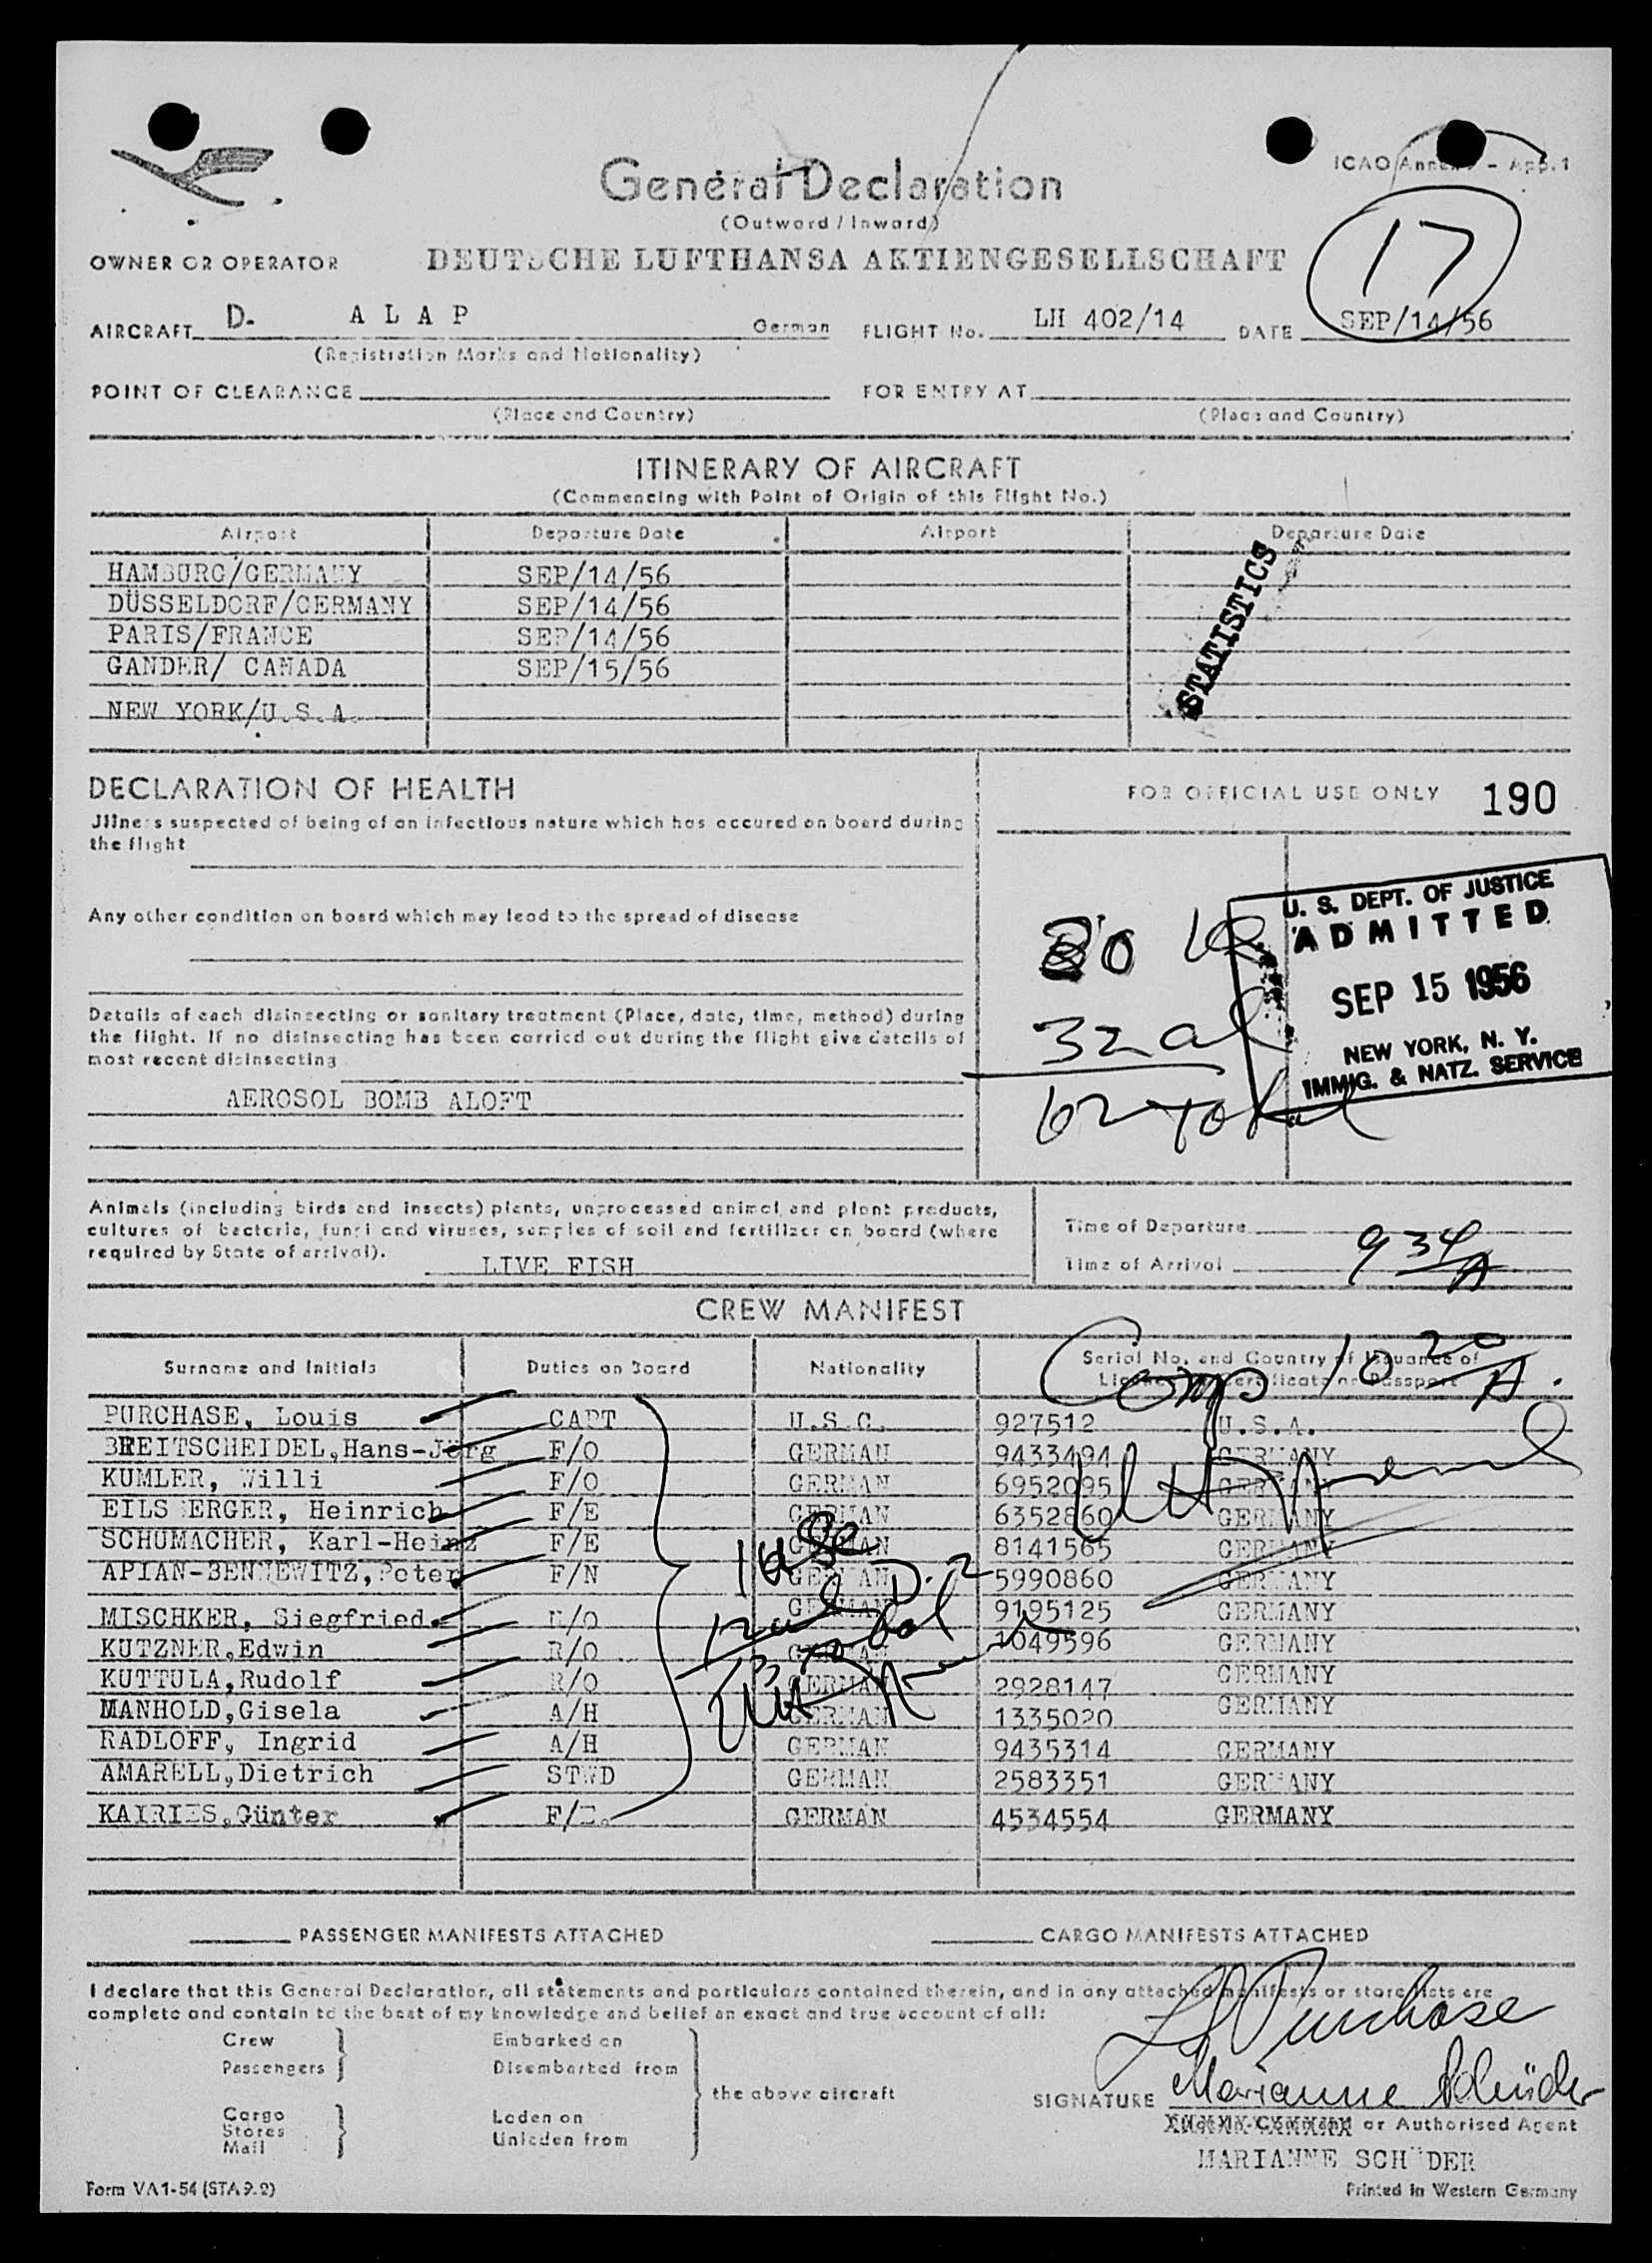 General Declaration
(Outward / Inward)
ICAO Annex 9 - App. 1
17
OWNER OR OPERATOR DEUTSCHE LUFTHANSA AKTIENGESELLSCHAFT
AIRCRAFT D- A L A P German FLIGHT No. LH 402/14 DATE SEP/14/56
(Registration Marks and Nationality)
POINT OF CLEARANCE FOR ENTRY AT
(Place and Country) (Place and Country)
ITINERARY OF AIRCRAFT
(Commencing with Point of Origin of this Flight No.)
Airport Departure Date Airport Departure Date
HAMBURG/GERMANY SEP/14/56
DÜSSELDORF/GERMANY SEP/14/56
PARIS/FRANCE SEP/14/56
GANDER/ CANADA SEP/15/56
NEW YORK/U.S.A.
STATISTICS
DECLARATION OF HEALTH
Jllness suspected of being of an infectious nature which has occured on board during
the flight
Any other condition on board which may lead to the spread of disease
Details of each disinsecting or sanitary treatment (Place, date, time, method) during
the flight. If no disinsecting has been carried out during the flight give details of
most recent disinsecting
AEROSOL BOMB ALOFT
FOR OFFICIAL USE ONLY 190
30
32 al
62 total
U. S. DEPT. OF JUSTICE
ADMITTED
SEP 15 1956
NEW YORK, N. Y.
IMMIG. & NATZ. SERVICE
Animals (including birds and insects) plants, unprocessed animal and plant products,
cultures of bacteria, fungi and viruses, samples of soil and fertilizer on board (where
required by State of arrival). LIVE FISH
Time of Departure
Time of Arrival 934 A
CREW MANIFEST
Surname and Initials Duties on Board Nationality Serial No. and Country of Issuance of
Licence Certificate or Passport
Comp 10 20 A.
PURCHASE, Louis CAPT U.S.C. 927512 U.S.A.
BREITSCHEIDEL,Hans-Jörg F/O GERMAN 9433494 GERMANY
KUMLER, Willi F/O GERMAN 6952095 GERMANY
EILS ERGER, Heinrich F/E GERMAN 6352860 GERMANY
SCHUMACHER, Karl-Heinz F/E GERMAN 8141565 GERMANY
APIAN-BENNEWITZ,Peter F/N GERMAN 5990860 GERMANY
MISCHKER, Siegfried. R/O GERMAN 9195125 GERMANY
KUTZNER,Edwin R/O GERMAN 1049596 GERMANY
KUTTULA,Rudolf R/O GERMAN 2928147 GERMANY
MANHOLD,Gisela A/H GERMAN 1335020 GERMANY
RADLOFF, Ingrid A/H GERMAN 9435314 GERMANY
AMARELL,Dietrich STWD GERMAN 2583351 GERMANY
KAIRIES,Günter F/E. GERMAN 4534554 GERMANY
1 usc
12 al D.2
13 total
PASSENGER MANIFESTS ATTACHED CARGO MANIFESTS ATTACHED
I declare that this General Declaration, all statements and particulars contained therein, and in any attached manifests or store lists are
complete and contain to the best of my knowledge and belief an exact and true account of all:
Crew Embarked on
Passengers Disembarked from
the above aircraft
Cargo Laden on
Stores
Mail Unladen from
L Purchase
SIGNATURE Marianne Schüder
or Authorised Agent
MARIANNE SCH¨DER
Form VA1-54 (STA 9.2) Printed in Western Germany